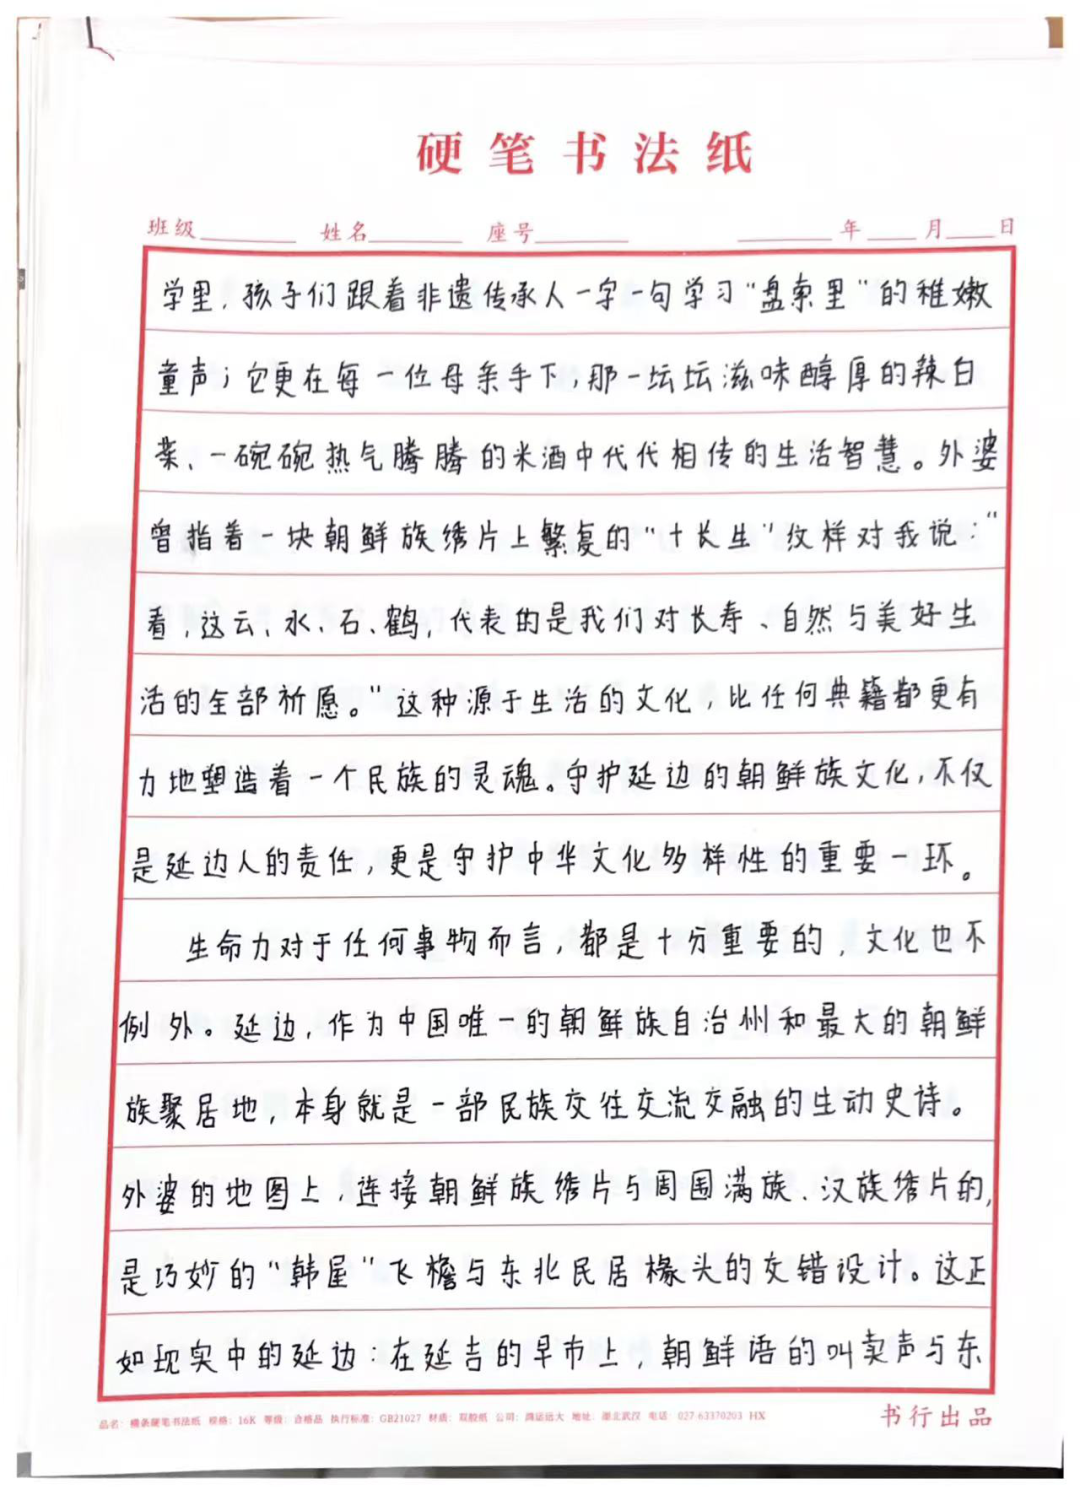 硬笔书法纸
班级 姓名 座号 年 月 日
学里,孩子们跟着非遗传承人一字一句学习“盘索里”的稚嫩
童声;它更在每一位母亲手下,那一坛坛滋味醇厚的辣白
菜、一碗碗热气腾腾的米酒中代代相传的生活智慧。外婆
曾指着一块朝鲜族绣片上繁复的“十长生”纹样对我说:“
看,这云、水、石、鹤,代表的是我们对长寿、自然与美好生
活的全部祈愿。”这种源于生活的文化,比任何典籍都更有
力地塑造着一个民族的灵魂。守护延边的朝鲜族文化,不仅
是延边人的责任,更是守护中华文化多样性的重要一环。
生命力对于任何事物而言,都是十分重要的,文化也不
例外。延边,作为中国唯一的朝鲜族自治州和最大的朝鲜
族聚居地,本身就是一部民族交往交流交融的生动史诗。
外婆的地图上,连接朝鲜族绣片与周围满族、汉族绣片的,
是巧妙的“韩屋”飞檐与东北民居椽头的交错设计。这正
如现实中的延边:在延吉的早市上,朝鲜语的叫卖声与东
品名:横条硬笔书法纸 规格:16K 等级:合格品 执行标准:GB21027 材质:双胶纸 公司:鸿运远大 地址:湖北武汉 电话:027-63370203 HX
书行出品